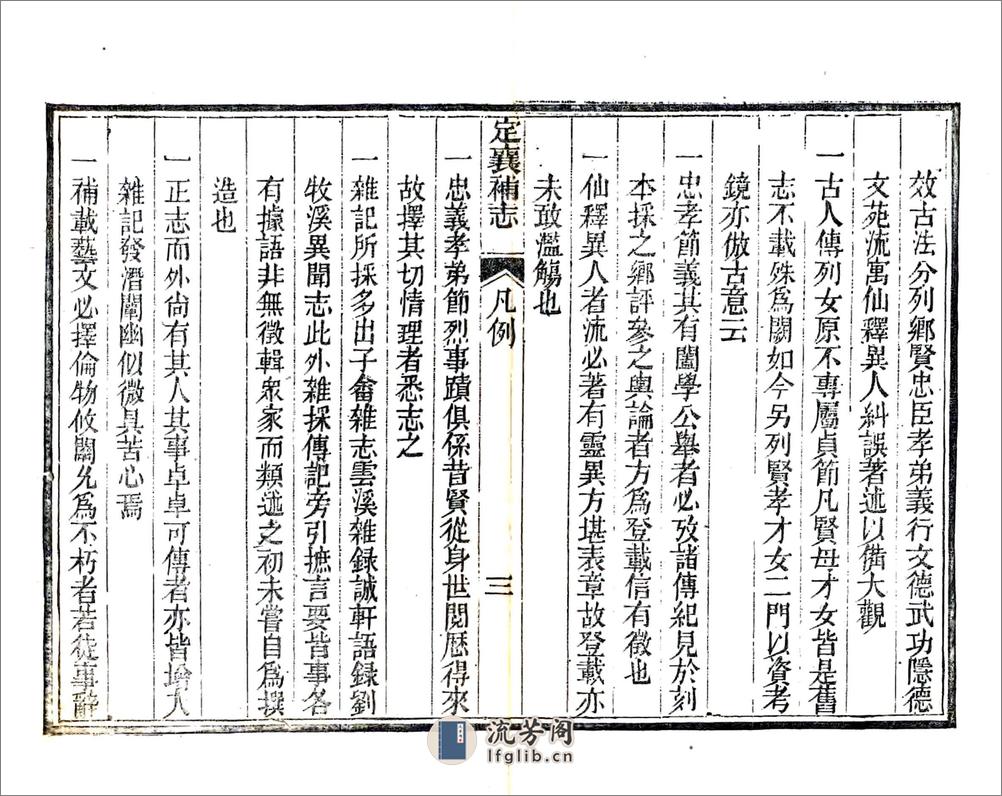 效古法分列鄉賢忠臣孝弟義行文德武功隱德
文苑流寓仙釋異人糾誤著述以備大觀
一古人傳列女原不專屬貞節凡賢母才女皆是舊
志不載殊爲闕如今另列賢孝才女二門以資考
鏡亦倣古意云
一忠孝節義其有闔學公舉者必攷諸傳紀見於刻
本採之鄉評參之輿論者方爲登載信有徵也
一仙釋異人者流必著有靈異方堪表章故登載亦
未敢濫觴也
定襄補志 凡例 三
一忠義孝弟節烈事蹟俱係昔賢從身世閱歷得來
故擇其切情理者悉志之
一雜記所採多出子畬雜志雲溪雜録誠軒語録劉
牧溪異聞志此外雜採傳記旁引摭言要皆事各
有據語非無徵輯衆家而類述之初未嘗自爲撰
造也
一正志而外尙有其人其事卓卓可傳者亦皆增入
雜記發潛闡幽似微具苦心焉
一補載藝文必擇倫物攸關允爲不朽者若徒事辭
流芳阁
lfglib.cn